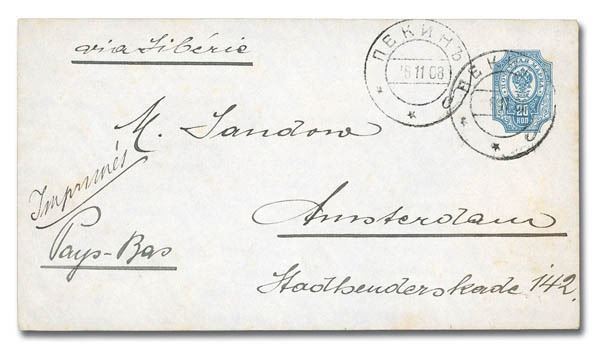 via Sibérie
ПЕКИНЪ
18 11 08
ПЕК
20
КОП
M. Sandow
Imprimés
Amsterdam
Pays-Bas
Stadhouderskade 142.